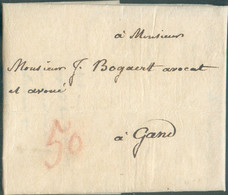 à Monsieur
Monsieur J. Bogaert avocat
et avoué
à Gand
50